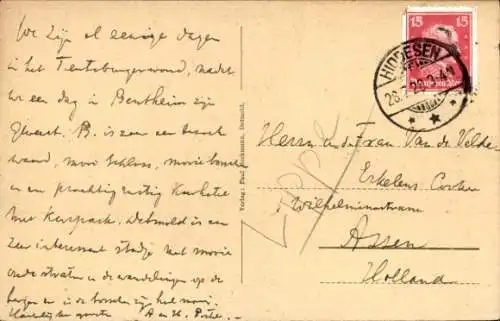 We zijn al eenige dagen
in het Teutoburgerwoud, nadat
we een dag in Bentheim zijn
geweest. B. is zeer een bezoek
waard, mooi Schloss, mooie bosschen
en een prachtig rustig Kurhotel
met Kurpark. Detmold is een
zeer interessant stadje met mooie
oude straten en de wandelingen op de
bergen en in de bosschen zijn heel mooi.
Hartelijke groeten A en H.
Verlag: Paul Detmold.
15 15
Deutsches Reich
HIDDESEN
28.7.
Lippe
Herrn en den Frau Van de Velde
Erkelens
Wilhelminastraat
Assen
Holland